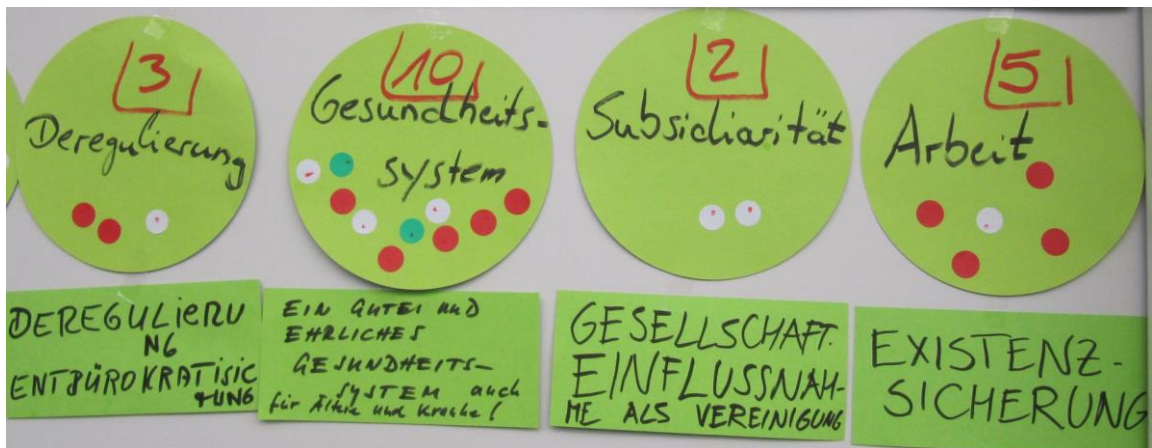 3
Deregulierung
10
Gesundheits-
system
2
Subsidiarität
5
Arbeit
DEREGULIERU
NG
ENTBÜROKRATISIE
RUNG
EIN GUTES UND
EHRLICHES
GESUNDHEITS-
SYSTEM auch
für Ältere und Kranke!
GESELLSCHAFT.
EINFLUSSNAH-
ME ALS VEREINIGUNG
EXISTENZ-
SICHERUNG